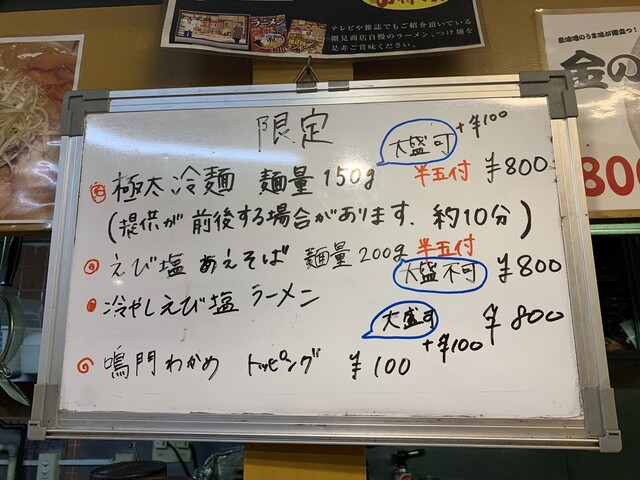 テレビや雑誌でもご紹介頂いている
細見商店自慢のラーメン、つけ麺を
是非ご賞味ください。
限定
大盛可 +¥100
極太冷麺 麺量150g 半玉付 ¥800
(提供が前後する場合があります. 約10分)
えび塩 あえそば 麺量200g 半玉付
大盛不可 ¥800
冷やしえび塩 ラーメン
大盛可 +¥100 ¥800
鳴門わかめ トッピング ¥100
金の
800